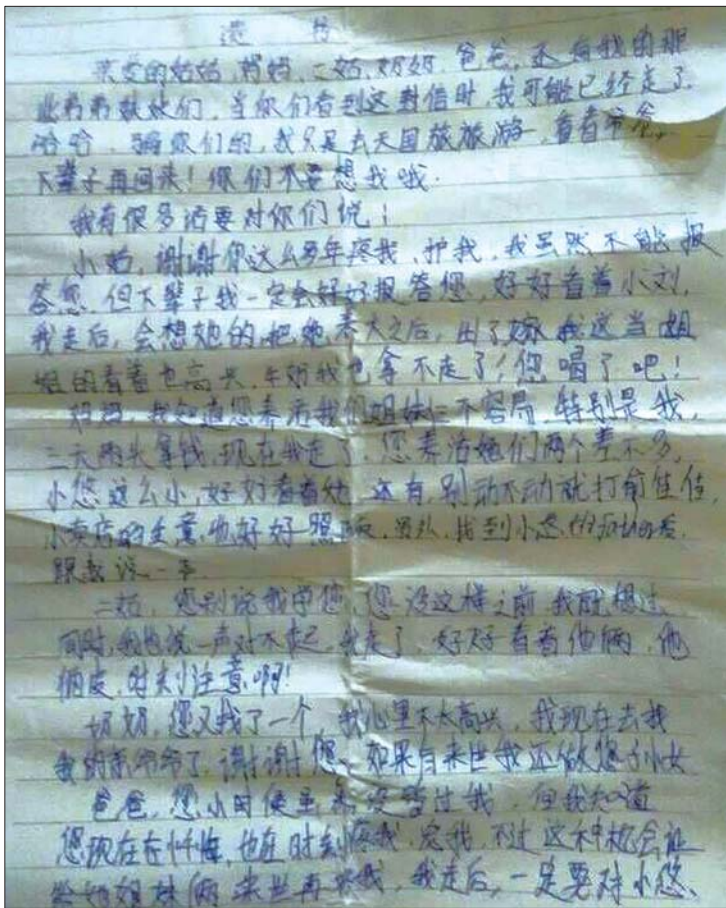 遗书
亲爱的姑姑、妈妈、二姑、奶奶、爸爸,还有我的那
些弟弟妹妹们,当你们看到这封信时,我可能已经走了
哈哈,骗你们的,我只是去天国旅旅游,看看爷爷,
下辈子再回来!你们不要想我哦.
我有很多话要对你们说!
小姑,谢谢你这么多年疼我、护我,我虽然不能报
答您,但下辈子我一定会好好报答您,好好看着小刘,
我走后,会想她的,把她养大之后,出了嫁我这当姐
姐的看着也高兴,牛奶我也拿不走了!您喝了吧!
妈妈,我知道您养活我们姐妹仨不容易,特别是我,
三天两头拿钱,现在我走了,您养活她们两个差不多,
小您这么小,好好看着她,还有,别动不动就打俞佳佳
小卖店的生意,也好好照顾,另外,找到小您
跟我说一声
二姑,您别说我学您,您没这样之前,我就想过
同时,我也说一声对不起,我走了,好好看着他俩,他
俩皮,时刻注意啊!
奶奶,您又找了一个,我心里不太高兴,我现在去找
我的亲爷爷了,谢谢您,如果有来世我还做您孙女
爸爸,您小时候虽然没管过我,但我知道
您现在在忏悔,也在时刻疼我、宠我,不过这种机会让
给她姐妹俩来世再疼我,我走后,一定要对小您、